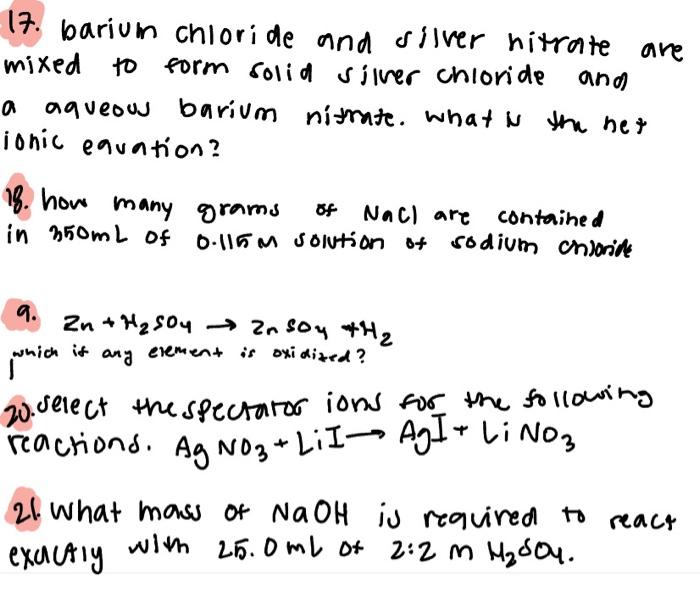 17. barium chloride and silver nitrate are
mixed to form solid silver chloride and
a aqueous barium nitrate. what is the net
ionic equation?
18. how many grams of NaCl are contained
in 350mL of 0.115 M solution of sodium chloride
9. Zn + H₂SO₄ → ZnSO₄ + H₂
which if any element is oxidized?
20. select the spectator ions for the following
reactions. AgNO₃ + LiI → AgI + LiNO₃
21. What mass of NaOH is required to react
exactly with 25.0 mL of 2:2 M H₂SO₄.